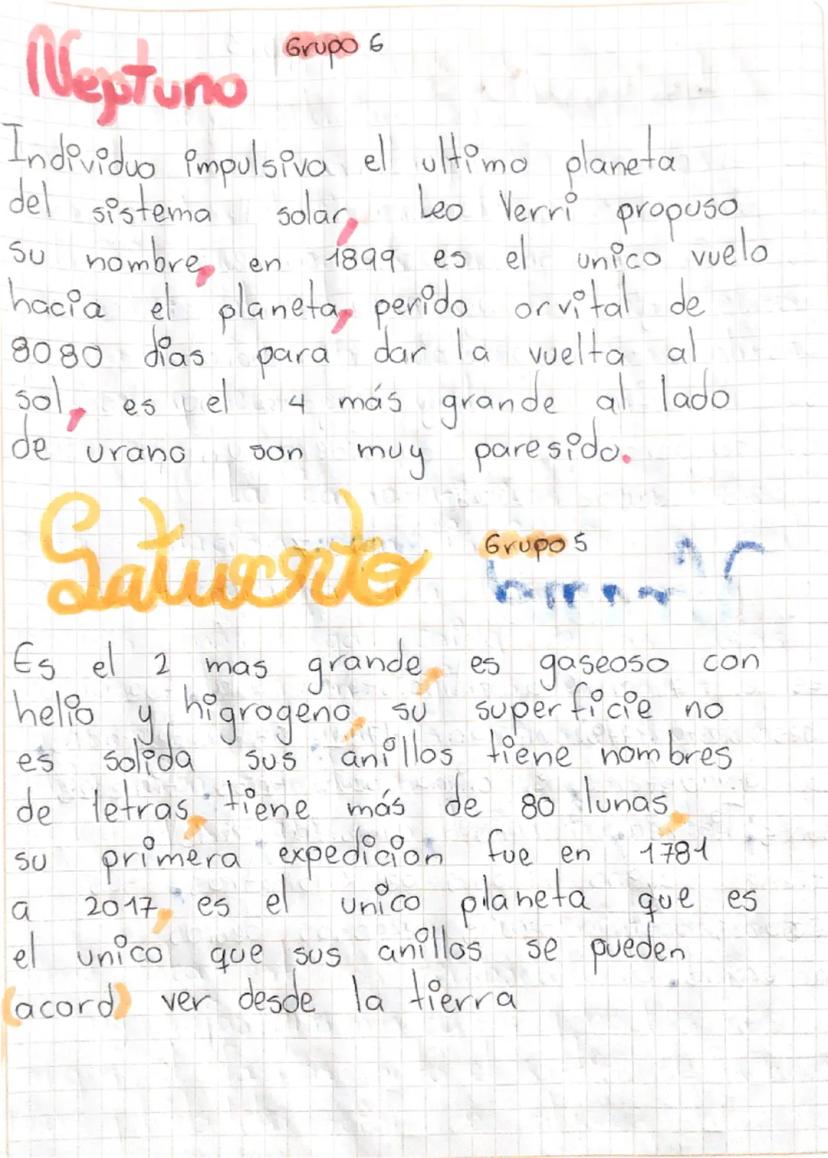 Neptuno Grupo 6
Individuo impulsiva el ultimo planeta
del sistema solar, Leo Verri propuso
su nombre, en 1899 es el unico vuelo
hacia el planeta, perido orvital de
8080 dias para dar la vuelta al
sol, es el 4 más grande al lado
de urano son muy paresido.
Saturno Grupo 5
Es el 2 mas grande, es gaseoso con
helio y higrogeno, su superficie no
es solida sus anillos tiene nombres
de letras, tiene más de 80 lunas,
su primera expedicion fue en 1781
a 2017, es el unico planeta que es
el unico que sus anillos se pueden
(acord) ver desde la tierra